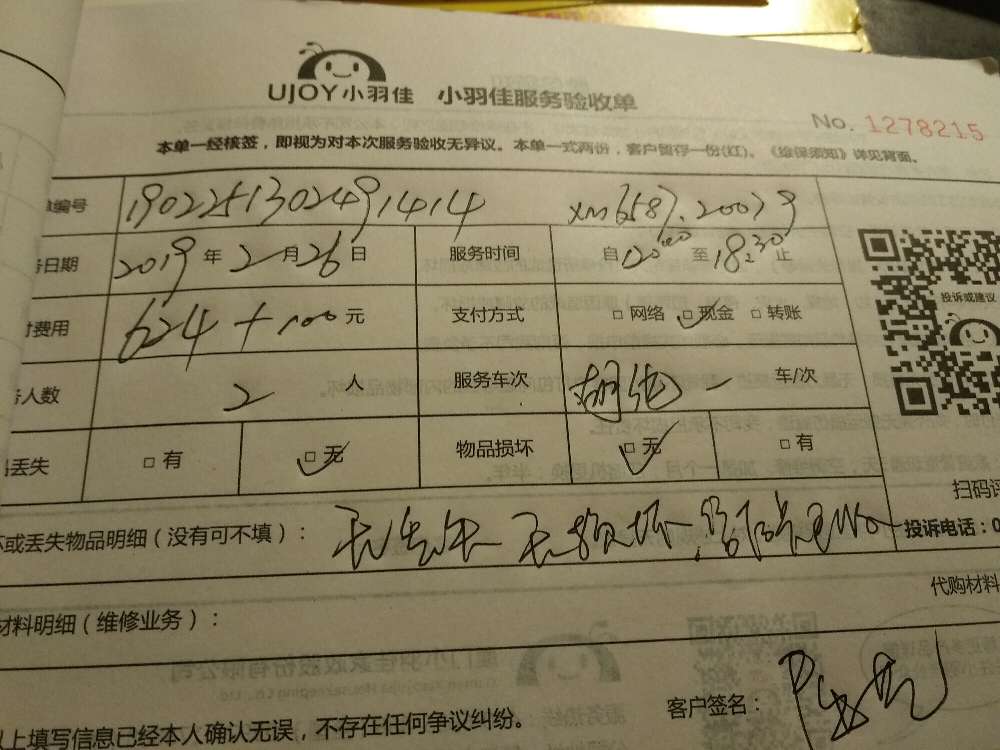 UJOY小羽佳 小羽佳服务验收单
No. 1278215
本单一经核签，即视为对本次服务验收无异议。本单一式两份，客户暂存一份(红)。《给保须知》详见背面。
编号 190225130249141４
日期 2019年2月26日 服务时间 自12:00至18:30止
费用 624+100元 支付方式 □网络 □现金 □转账
人数 2人 服务车次 一 车/次
丢失 □有 □无 物品损坏 □无 □有
投诉或建议
扫码评
投诉电话：0
坏或丢失物品明细（没有可不填）： 无丢失 无损坏
代购材料
材料明细（维修业务）：
客户签名：
以上填写信息已经本人确认无误，不存在任何争议纠纷。